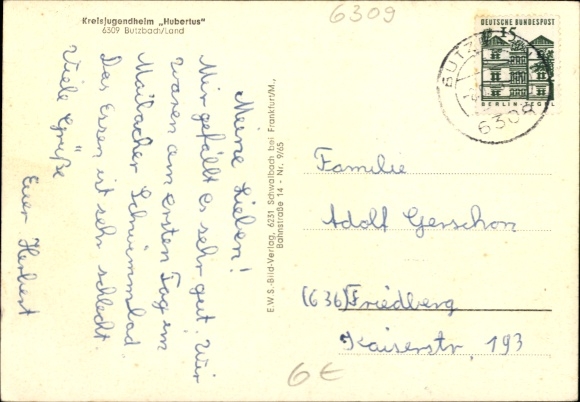 Kreisjugendheim „Hubertus"
6309 Butzbach/Land
6309
DEUTSCHE BUNDESPOST
15
BERLIN-TEGEL
BUTZ
6308
Meine Lieben!
Mir gefällt es sehr gut. Wir
waren am ersten Tag im
Maibacher Schwimmbad
Das Essen ist sehr schlecht.
Viele Grüße
Euer Herbert
E.W.S.-Bild-Verlag, 6231 Schwalbach bei Frankfurt/M.,
Bahnstraße 14 - Nr. 9/65
Familie
Adolf Gerschon
(636) Friedberg
Kaiserstr, 193
6€